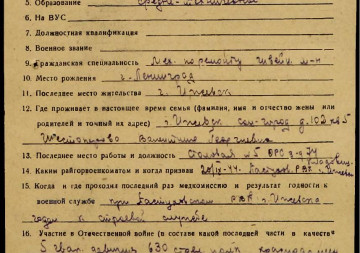 5. Образование Средне-техническое
6. На ВУС
7. Должностная квалификация
8. Военное звание
9. Гражданская специальность Мех. по ремонту швейн. м-н
10. Место рождения г. Ленинград
11. Последнее место жительства г. Ижевск
12. Где проживает в настоящее время семья (фамилия, имя и отчество жены или
родителей и точный их адрес) г. Ижевск Соц-город д. 102 кв 5
Валентина Георгиевна
13. Последнее место работы и должность Столовая № 5
14. Каким райгорвоенкоматом и когда призван Пастуховск. РВК г. Ижевск
15. Когда и где проходил последний раз медкомиссию и результат годности к
военной службе при Пастуховском РВК г. Ижевска
годен к строевой службе
16. Участие в Отечественной войне (в составе какой последней части в качеств
5 630 стрел. полк